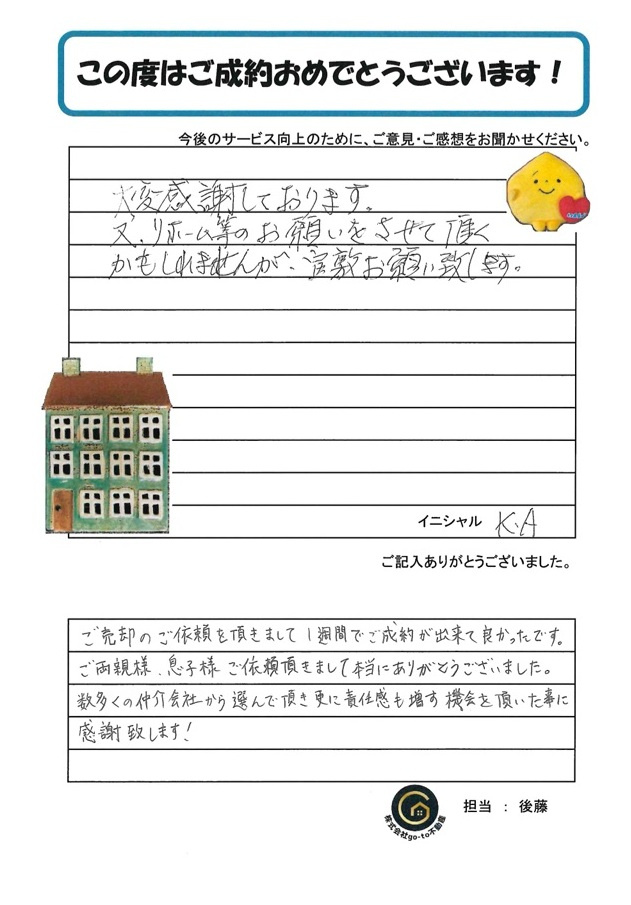 この度はご成約おめでとうございます！
今後のサービス向上のために、ご意見・ご感想をお聞かせください。
大変感謝しております。
又、リホーム等のお願いをさせて頂く
かもしれませんが、宜敷お願い致します。
イニシャル K.A
ご記入ありがとうございました。
ご売却のご依頼を頂きまして1週間でご成約が出来て良かったです。
ご両親様、息子様ご依頼頂きまして本当にありがとうございました。
数多くの仲介会社から選んで頂き更に責任感も増す機会を頂いた事に
感謝致します!
担当 : 後藤
株式会社go-to不動産